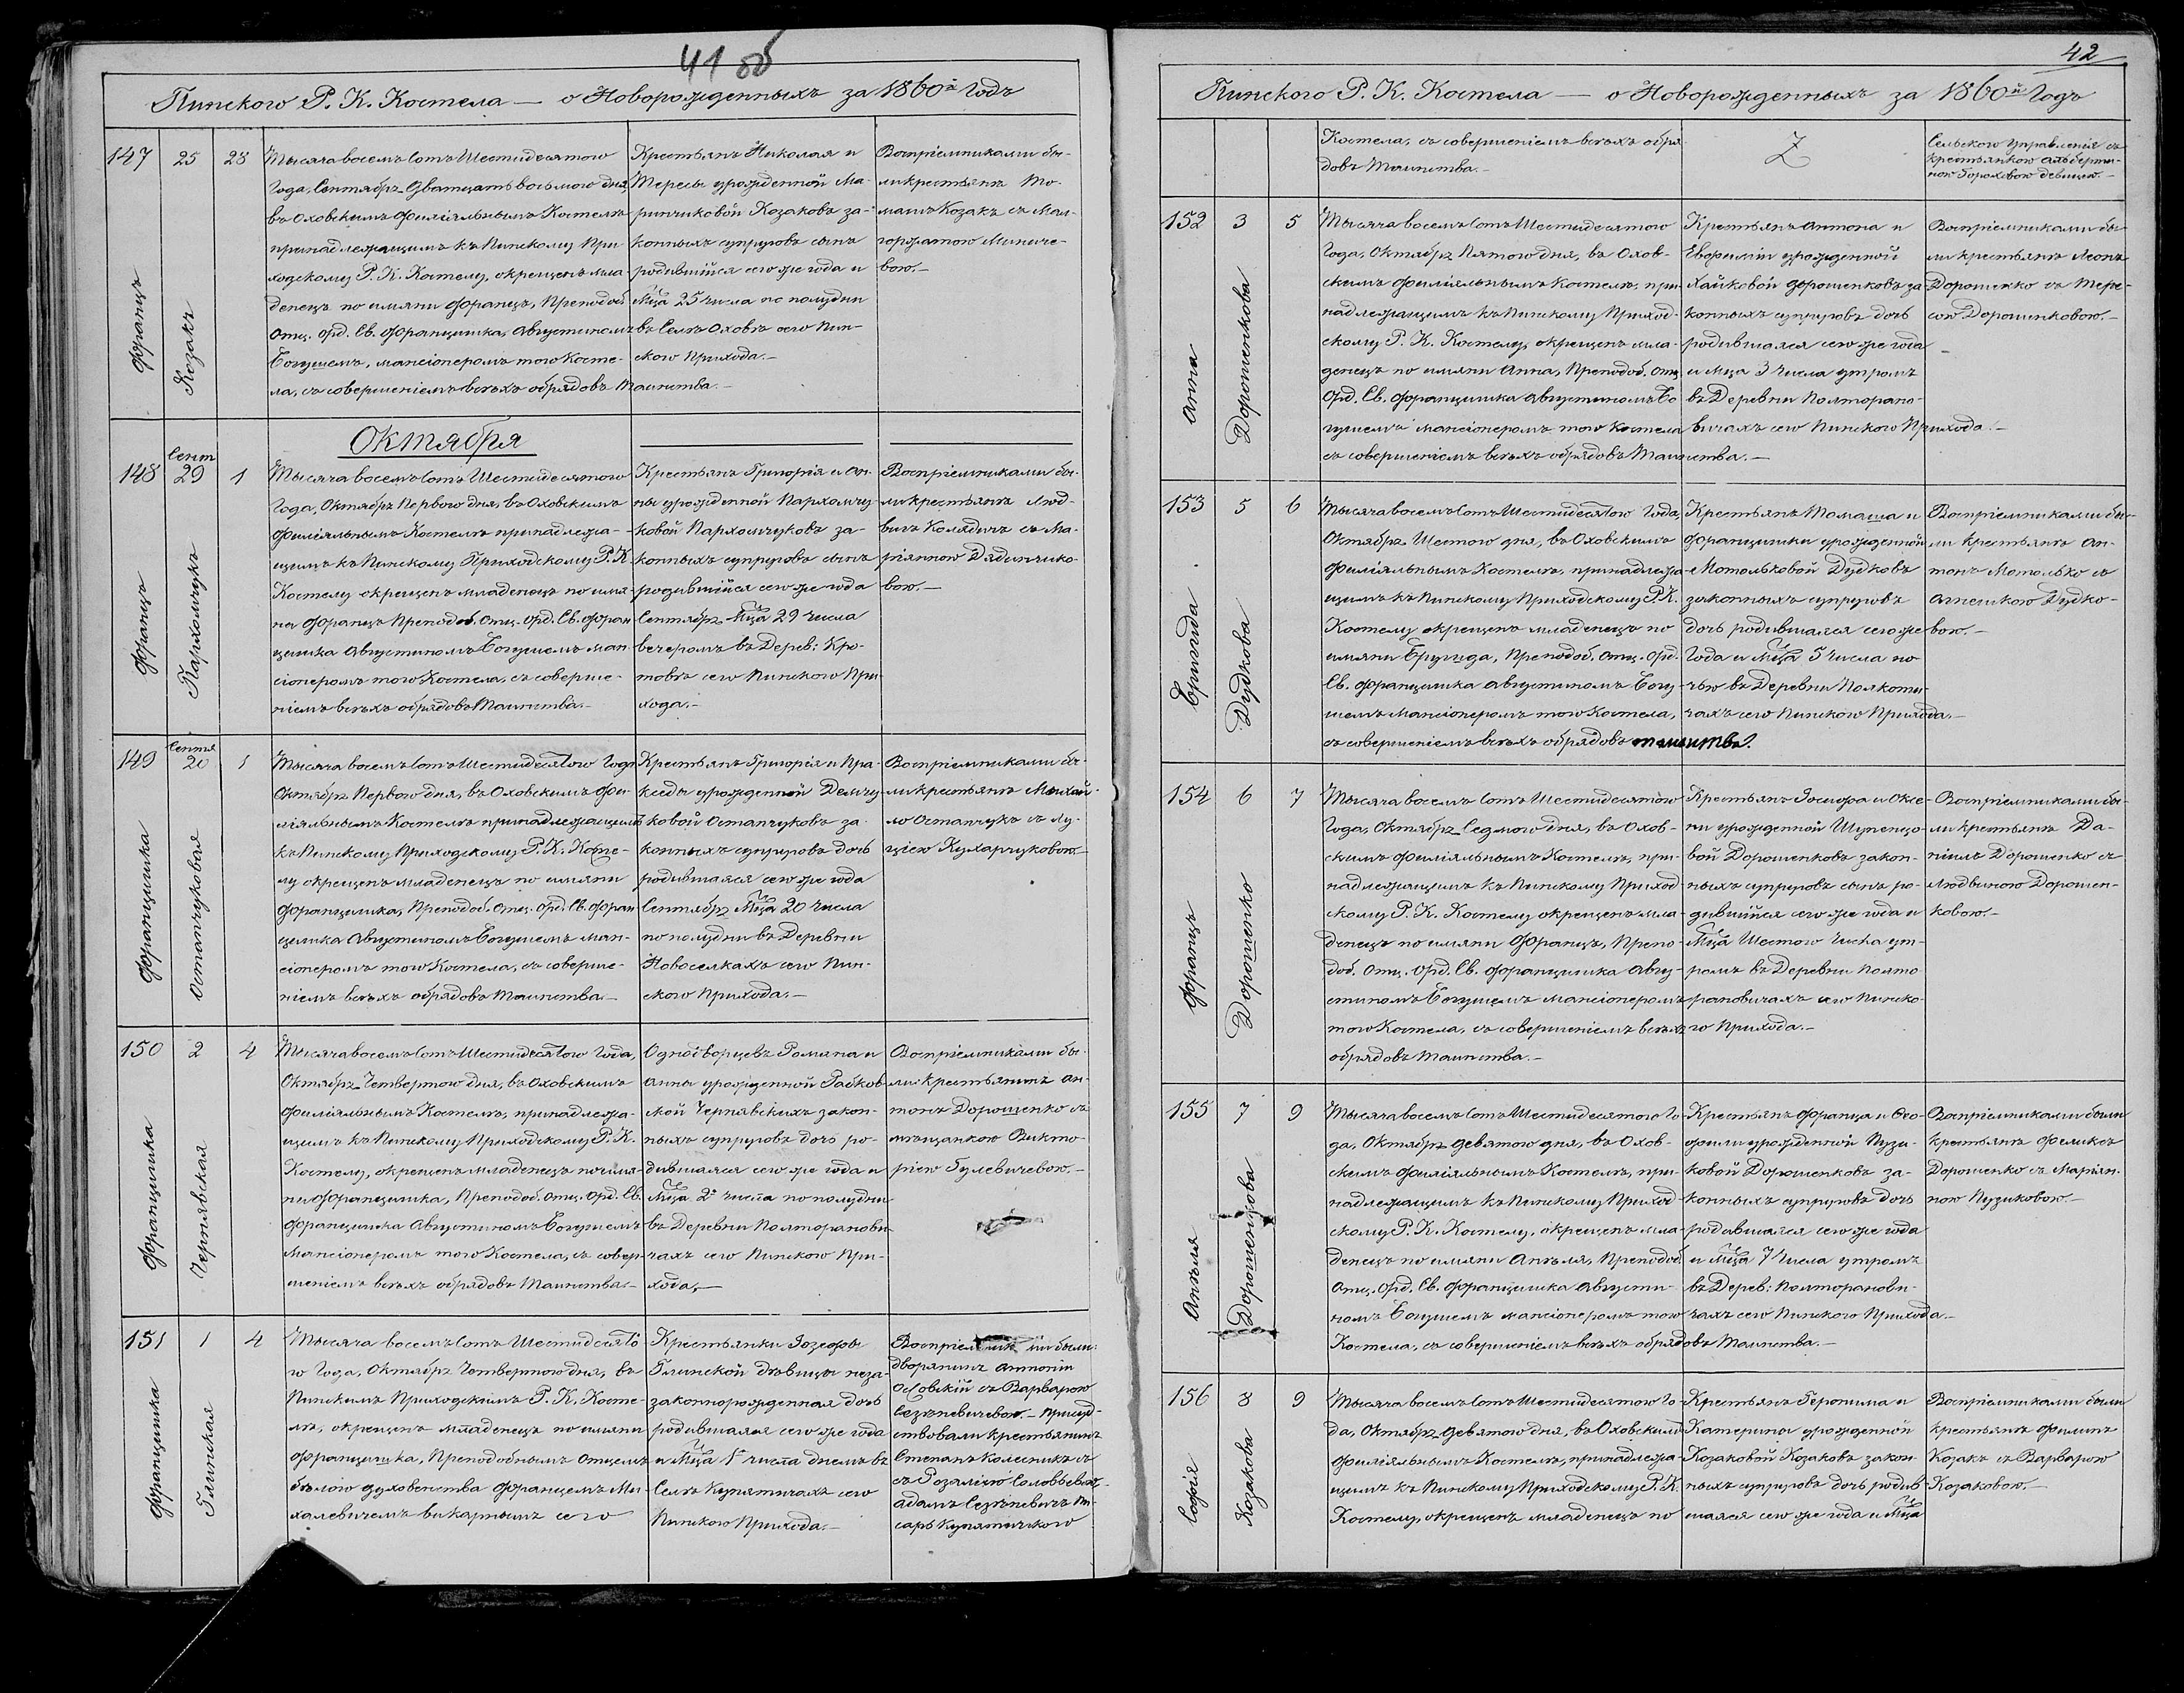 41 об
Пинского Р. К. Костела — о Новорожденныхъ за 1860й Годъ
147 25 28
Францъ
Козакъ
Тысяча восемь Сотъ Шестидесятого
Года, Сентябръ Дватцать восьмого дня
въ Оховскимъ Филіяльнымъ Костелѣ
принадлежащимъ къ Пинскому При-
ходскому Р. К. Костелу, окрещенъ мла-
денецъ по имяни Францъ, Преподоб.
Отц. Орд. Св. Францишка, Августиномъ
Богушемъ, мансіонеромъ того Косте-
ла, съ совершеніемъ всѣхъ обрядовъ Таинства.—
Крестьянъ Николая и
Тересы урожденной Ма-
ринчиковой Козаковъ за-
конныхъ супруговъ сынъ
родившійся сего же года и
Мца 25 числа по полудни
въ Селѣ Оховѣ сего Пин-
ского Прихода.—
Воспріемниками бы-
ли крестьянъ То-
машъ Козакъ съ Мал-
горжатою Миниче-
вою.—
Октября
148 Сент 29 1
Францъ
Пархомчукъ
Тысяча восемь Сотъ Шестидесятого
Года, Октябръ Первого дня, въ Оховскимъ
Филіяльнымъ Костелѣ принадлежа-
щимъ къ Пинскому Приходскому Р. К.
Костелу окрещенъ младенецъ по имя-
ни Францъ Преподоб. Отц. Орд. Св. Фран
цишка Августиномъ Богушемъ ман-
сіонеромъ того Костела, съ соверше-
ніемъ всѣхъ обрядовъ Таинства.—
Крестьянъ Григорія и Ан-
ны урожденной Пархомчу-
ковой Пархомчуковъ за-
конныхъ супруговъ сынъ
родившійся сего же года
Сентябръ Мца 29 числа
вечеромъ въ Дерев: Кро-
товѣ сего Пинского При-
хода.—
Воспріемниками бы-
ли крестьянъ Люд-
викъ Колядичъ съ Ма-
ріянною Дядинчико-
вою.—
149 Сентя 20 1
Францишка
Остапчуковая
Тысяча восемь Сотъ Шестидесятого Года
Октябръ Первого дня, въ Оховскимъ Фи-
ліяльнымъ Костелѣ принадлежащимъ
къ Пинскому Приходскому Р. К. Косте-
лу окрещенъ младенецъ по имяни
Францишка, Преподоб. Отц. Орд. Св. Фран
цишка Августиномъ Богушемъ ман-
сіонеромъ того Костела, съ соверше-
ніемъ всѣхъ обрядовъ Таинства.—
Крестьянъ Григорія и Пра-
кседы урожденной Демчу-
ковой Остапчуковъ за-
конныхъ супруговъ дочь
родившаяся сего же года
Сентябръ Мца 20 числа
по полудни въ Деревни
Новоселкахъ сего Пин-
ского Прихода.—
Воспріемниками бы-
ли крестьянъ Михай-
ло Остапчукъ съ Лу-
цією Кухарчуковою.—
150 2 4
Францишка
Чернявская
Тысяча восемь Сотъ Шестидесятого Года,
Октябръ Четвертого дня, въ Оховскимъ
Филіяльнымъ Костелѣ, принадлежа-
щимъ къ Пинскому Приходскому Р. К.
Костелу, окрещенъ младенецъ по имя-
ни Францишка, Преподоб. Отц. Орд. Св.
Францишка Августиномъ Богушемъ
Мансіонеромъ того Костела, съ совер-
шеніемъ всѣхъ обрядовъ Таинства.—
Однодворцевъ Романа и
Анны урожденной Рабков-
ской Чернявскихъ закон-
ныхъ супруговъ дочь ро-
дившаяся сего же года и
Мца 2 числа по полудни
въ Деревни Полторанови-
чахъ сего Пинского При-
хода.—
Воспріемниками бы-
ли крестьянинъ Ан-
тонъ Дорошенко съ
мѣщанкою Викто-
ріею Гулевичевою.—
151 1 4
Францишка
Глинская
Тысяча восемь Сотъ Шестидесято
го Года, Октябръ Четвертого дня, въ
Пинскимъ Приходскимъ Р. К. Косте-
лѣ, окрещенъ младенецъ по имяни
Францишка, Преподобнымъ Отцемъ
бѣлого духовенства Францемъ Ми-
халевичемъ викарнымъ сего
Крестьянки Іозефы
Глинской дѣвицы неза-
законнорожденная дочь
родившаяся сего же года
и Мца 1 числа днемъ въ
Селѣ Купятичахъ сего
Пинского Прихода.—
Воспріемниками были:
дворянинъ Антоній
Осовскій съ Варварою
Сезѣневичевою.— Присуд-
ствовали крестьянинъ
Степанъ Колесникъ съ
съ Розалією Соловьевою,
Адамъ Сезѣневичъ Пи-
сарь Купятичского
42
Пинского Р. К. Костела — о Новорожденныхъ за 1860й Годъ
Костела, съ совершеніемъ всѣхъ обря
довъ Таинства.—
Z
Сельского Управленія съ
крестьянкою Альберти-
ною Гороховою дѣвицею.—
152 3 5
Анна
Дорошенкова
Тысяча восемь Сотъ Шестидесятого
Года, Октябръ Пятого дня, въ Охов-
скимъ Филіяльнымъ Костелѣ, при-
надлежащимъ къ Пинскому Приход-
скому Р. К. Костелу, окрещенъ мла-
денецъ по имяни Анна, Преподоб. Отц.
Орд. Св. Францишка Августиномъ Бо
гушемъ мансіонеромъ того Костела
съ совершеніемъ всѣхъ обрядовъ Таинства.—
Крестьянъ Антона и
Евфиміи урожденной
Хайковой Дорошенковъ за-
конныхъ супруговъ дочь
родившаяся сего же года
и Мца 3 числа утромъ
въ Деревни Полторано-
вичахъ сего Пинского Прихода.—
Воспріемниками бы-
ли крестьянъ Леонъ
Дорошенко съ Тере-
сою Дорошенковою.—
153 5 6
Бригида
Дудкова
Тысяча восемь Сотъ Шестидесятого Года,
Октябръ Шестого дня, въ Оховскимъ
Филіяльнымъ Костелѣ, принадлежа-
щимъ къ Пинскому Приходскому Р. К.
Костелу окрещенъ младенецъ по
имяни Бригида, Преподоб. Отц. Орд.
Св. Францишка Августиномъ Богу-
шемъ Мансіонеромъ того Костела,
съ совершеніемъ всѣхъ обрядовъ таинства.
Крестьянъ Томаша и
Францишки урожденной
Мотольковой Дудковъ
законныхъ супруговъ
дочь родившаяся сего же
Года и Мца 5 числа но-
чью въ Деревни Полкоти-
чахъ сего Пинского Прихода.—
Воспріемниками бы-
ли крестьянъ Ан-
тонъ Мотолько съ
Агнешкою Дудко-
вою.—
154 6 7
Францъ
Дорошенко
Тысяча восемь Сотъ Шестидесятого
Года, Октябръ Седмого дня, въ Охов-
скимъ Филіяльнымъ Костелѣ, при-
надлежащимъ къ Пинскому Приход
скому Р. К. Костелу окрещенъ мла-
денецъ по имяни Францъ, Препо-
доб. Отц. Орд. Св. Францишка Авгу-
стиномъ Богушемъ мансіонеромъ
того Костела, съ совершеніемъ всѣхъ
обрядовъ таинства.—
Крестьянъ Іосифа и Оксе-
ни урожденной Шупенцо-
вой Дорошенковъ закон-
ныхъ супруговъ сынъ ро-
дившійся сего же года и
Мца Шестого Числа ут-
ромъ въ Деревни Полто
рановичахъ сего Пинско-
го Прихода.—
Воспріемниками бы-
ли крестьянъ Да-
ніилъ Дорошенко съ
Людвикою Дорошен-
ковою.—
155 7 9
Анѣля
Дорошенкова
Тысяча восемь Сотъ Шестидесятого Го-
да, Октябръ девятого дня, въ Охов-
скимъ Филіяльнымъ Костелѣ, при-
надлежащимъ къ Пинскому Приход
скому Р. К. Костелу, окрещенъ мла-
денецъ по имяни Анѣля, Преподоб.
Отц. Орд. Св. Францишка Августи-
номъ Богушемъ мансіонеромъ того
Костела, съ совершеніемъ всѣхъ обрядовъ Таинства.—
Крестьянъ Франца и Фео-
филии урожденной Пузи-
ковой Дорошенковъ за-
конныхъ супруговъ дочь
родившаяся сего же года
и Мца 7 числа утромъ
въ Дерев: Полторанови-
чахъ сего Пинского Прихода.—
Воспріемниками были
крестьянъ Феликсъ
Дорошенко съ Маріян-
ною Пузиковою.—
156 8 9
Софія
Козакова
Тысяча восемь Сотъ Шестидесятого Го-
да, Октябръ девятого дня, въ Оховскимъ
Филіяльнымъ Костелѣ, принадлежа-
щимъ къ Пинскому Приходскому Р. К.
Костелу, окрещенъ младенецъ по
Крестьянъ Геронима и
Катерины урожденной
Козаковой Козаковъ закон-
ныхъ супруговъ дочь родив
шаяся сего же года и Мца
Воспріемниками были
крестьянъ Филипъ
Козакъ съ Варварою
Козаковою.—